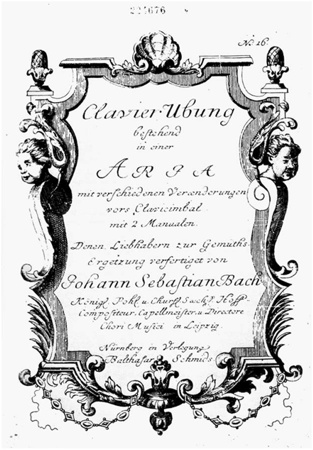 224676
No 16
Clavier Ubung
bestehend
in einer
ARIA
mit verschiedenen Veraenderungen
vors Clavicimbal
mit 2 Manualen.
Denen Liebhabern zur Gemüths-
Ergetzung verfertiget von
Johann Sebastian Bach
Königl. Pohl. u. Churfl. Sæchs. Hoff-
Compositeur, Capellmeister, u. Directore
Chori Musici in Leipzig.
Nürnberg in Verlegung
Balthasar Schmids